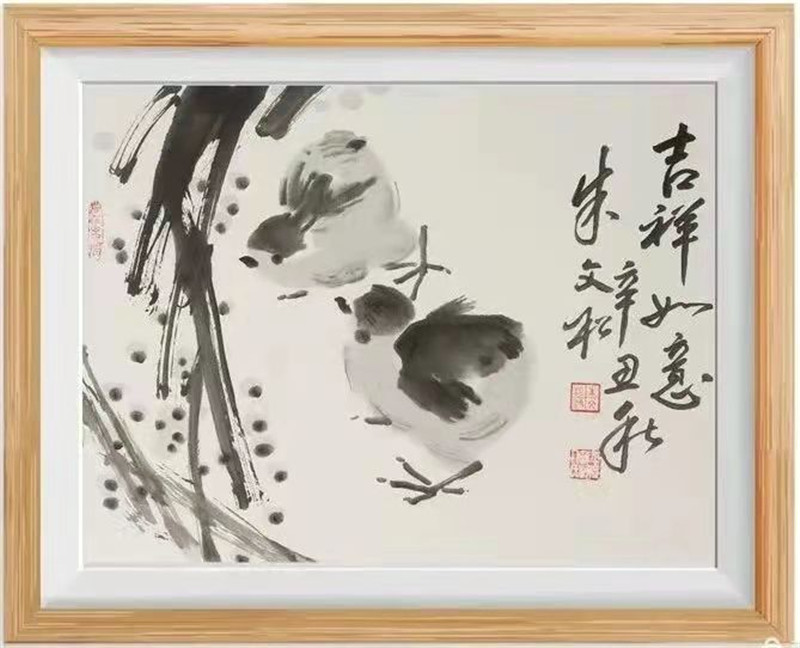 吉祥如意
辛丑秋
朱文松